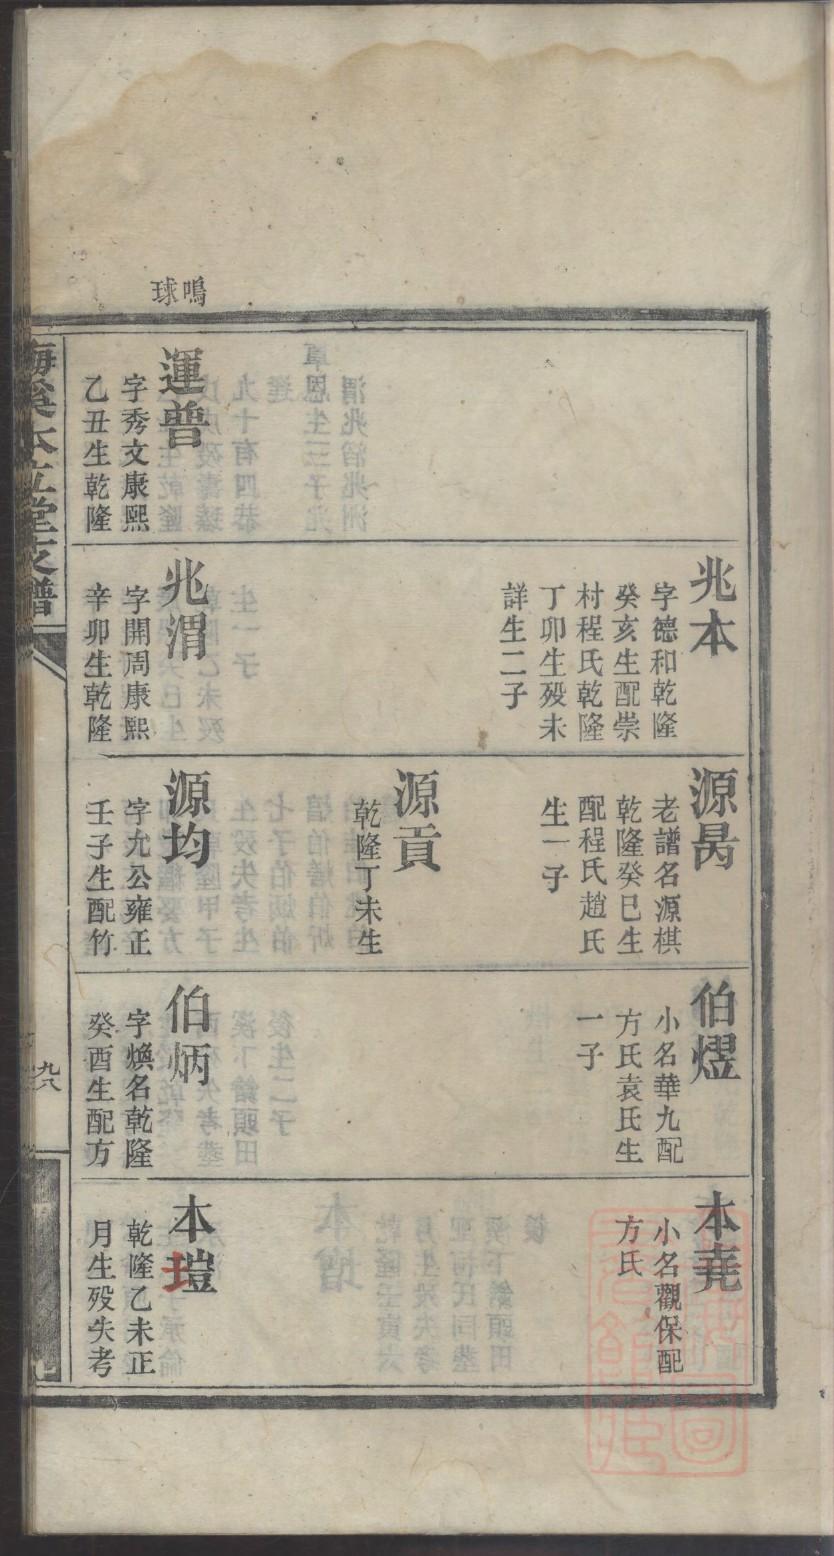 鳴球
兆本
字德和乾隆
癸亥生配崇
村程氏乾隆
丁卯生歿未
詳生二子
源昺
老譜名源棋
乾隆癸巳生
配程氏趙氏
生一子
源貢
乾隆丁未生
伯熤
小名華九配
方氏袁氏生
一子
本堯
小名觀保配
方氏
運普
字秀文康熙
乙丑生乾隆
兆渭
字開周康熙
辛卯生乾隆
源均
字允公雍正
壬子生配竹
伯炳
字煥名乾隆
癸酉生配方
本塏
乾隆乙未正
月生歿失考
海溪本立堂支譜
九八